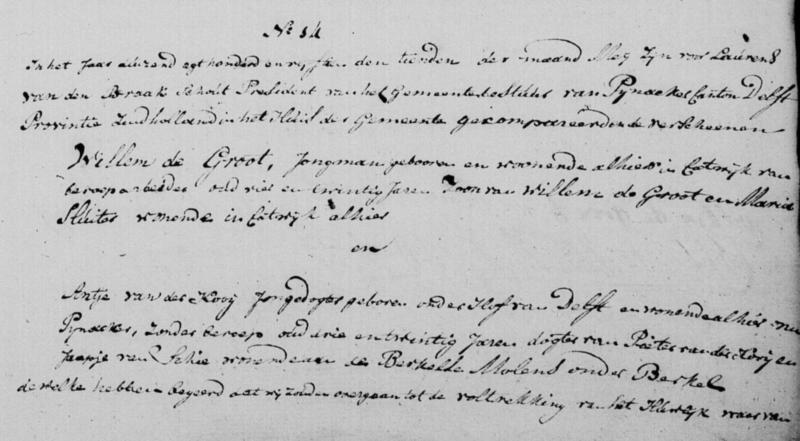 No 14
In het Jaar duizend agt honderd en vyftien den tienden der maand Mey Zyn voor Laurens
van den Braak Schout President van het Gemeente bestuur van Pynacker Canton Delft
Provintie Zuidholland in het Huis der Gemeente gecompareerd ende verscheenen
Willem de Groot, Jongman gebooren en woonende alhier in Catwyk van
beroep arbeider oud vier en twintig Jaren Zoon van Willem de Groot en Maria
Sluiter wonende in Catwyk alhier
en
Antje van der Kooij Jongedogter geboren onder Hof van Delft en wonende alhier
Pynacker, zonder beroep oud drie en twintig Jaren dogter van Pieter van der Kooij en
Jaapje van Schie wonende aan de Berkelse Molens onder Berkel
dewelke hebben begeerd dat wy zouden overgaan tot de voltrekking van het Huwelyk waar van